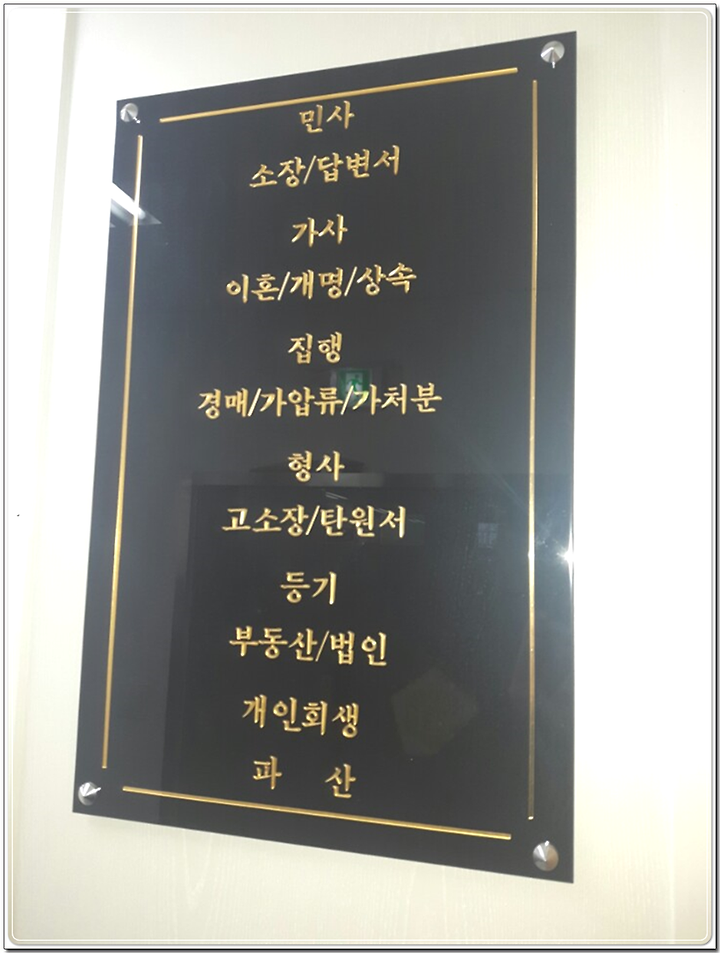 민사
소장/답변서
가사
이혼/개명/상속
집행
경매/가압류/가처분
형사
고소장/탄원서
등기
부동산/법인
개인회생
파 산